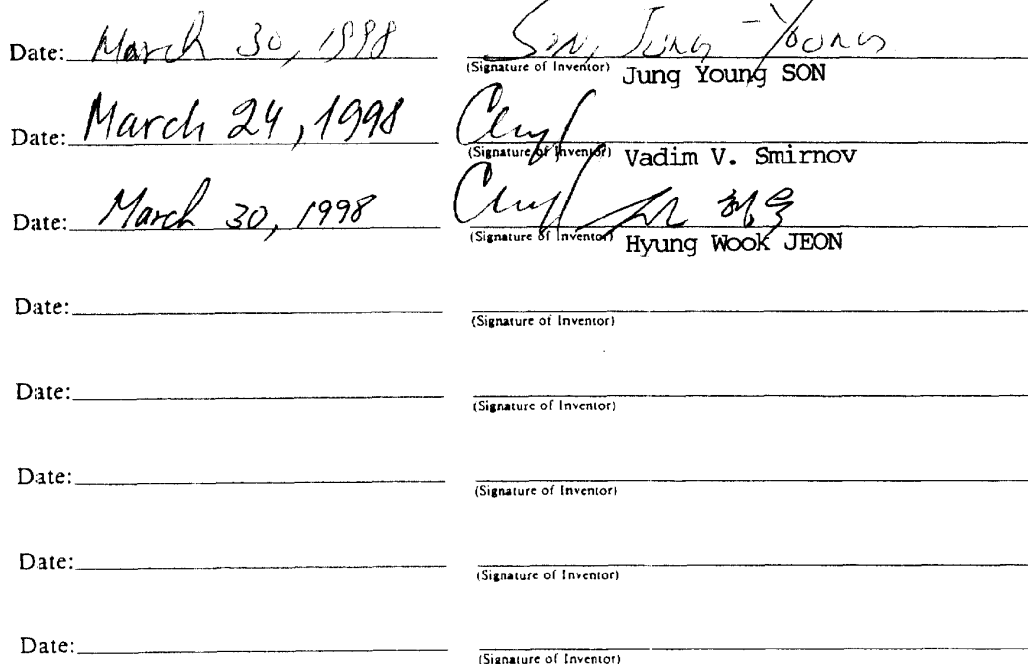 Date: March 30, 1998 Son, Jung-Young
(Signature of Inventor) Jung Young SON
Date: March 24, 1998
(Signature of Inventor) Vadim V. Smirnov
Date: March 30, 1998
(Signature of Inventor) Hyung Wook JEON
Date:
(Signature of Inventor)
Date:
(Signature of Inventor)
Date:
(Signature of Inventor)
Date:
(Signature of Inventor)
Date:
(Signature of Inventor)